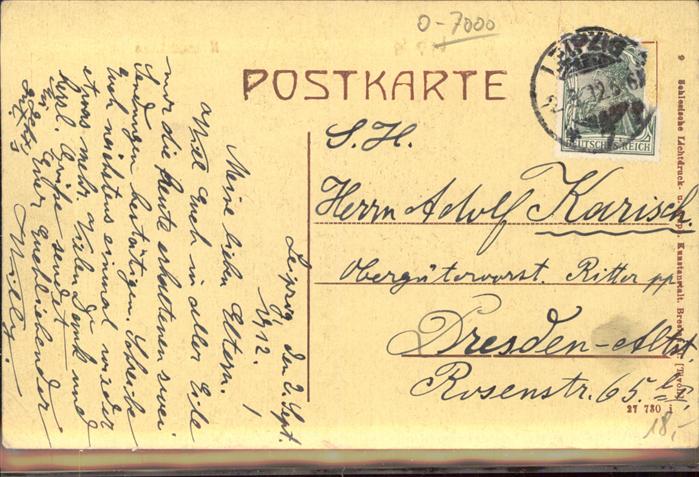 0-7000
POSTKARTE
LEIPZIG
DEUTSCHES REICH
S. H.
Herrn Adolf Karisch.
Obergütervorst. Ritter pp
Dresden-Altst.
Rosenstr. 65.
27 730
18,-
9 Schlesische Lichtdruck- u. Kunstanstalt, Breslau
Leipzig, den 2. Sept.
1912.
Meine lieben Eltern!
Will Euch in aller Eile
nur die heute erhaltenen zwei
Sendungen bestätigen. Schreibe
Euch nächstens einmal wieder
etwas mehr. Vielen Dank und
herzl. Grüße sendet
Euer Euch liebender
Willy.